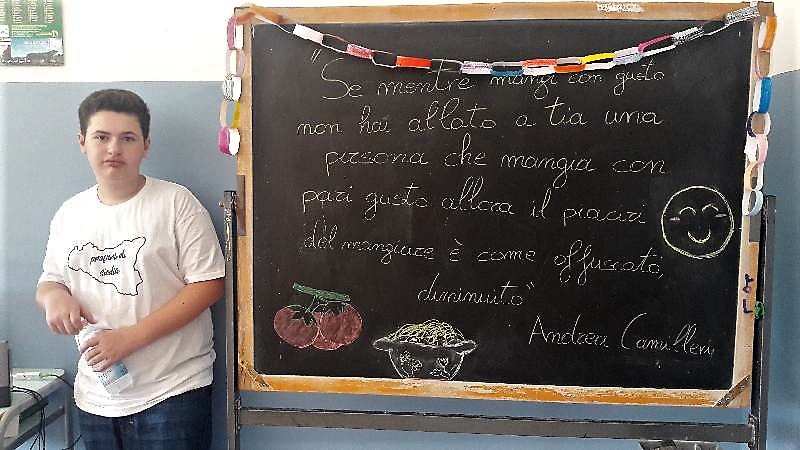 "Se mentre mangi con gusto
non hai allato a tia una
pirsona che mangia con
pari gusto allora il piaciri
del mangiare è come offuscato,
diminuito"
Andrea Camilleri
profumi di
sicilia